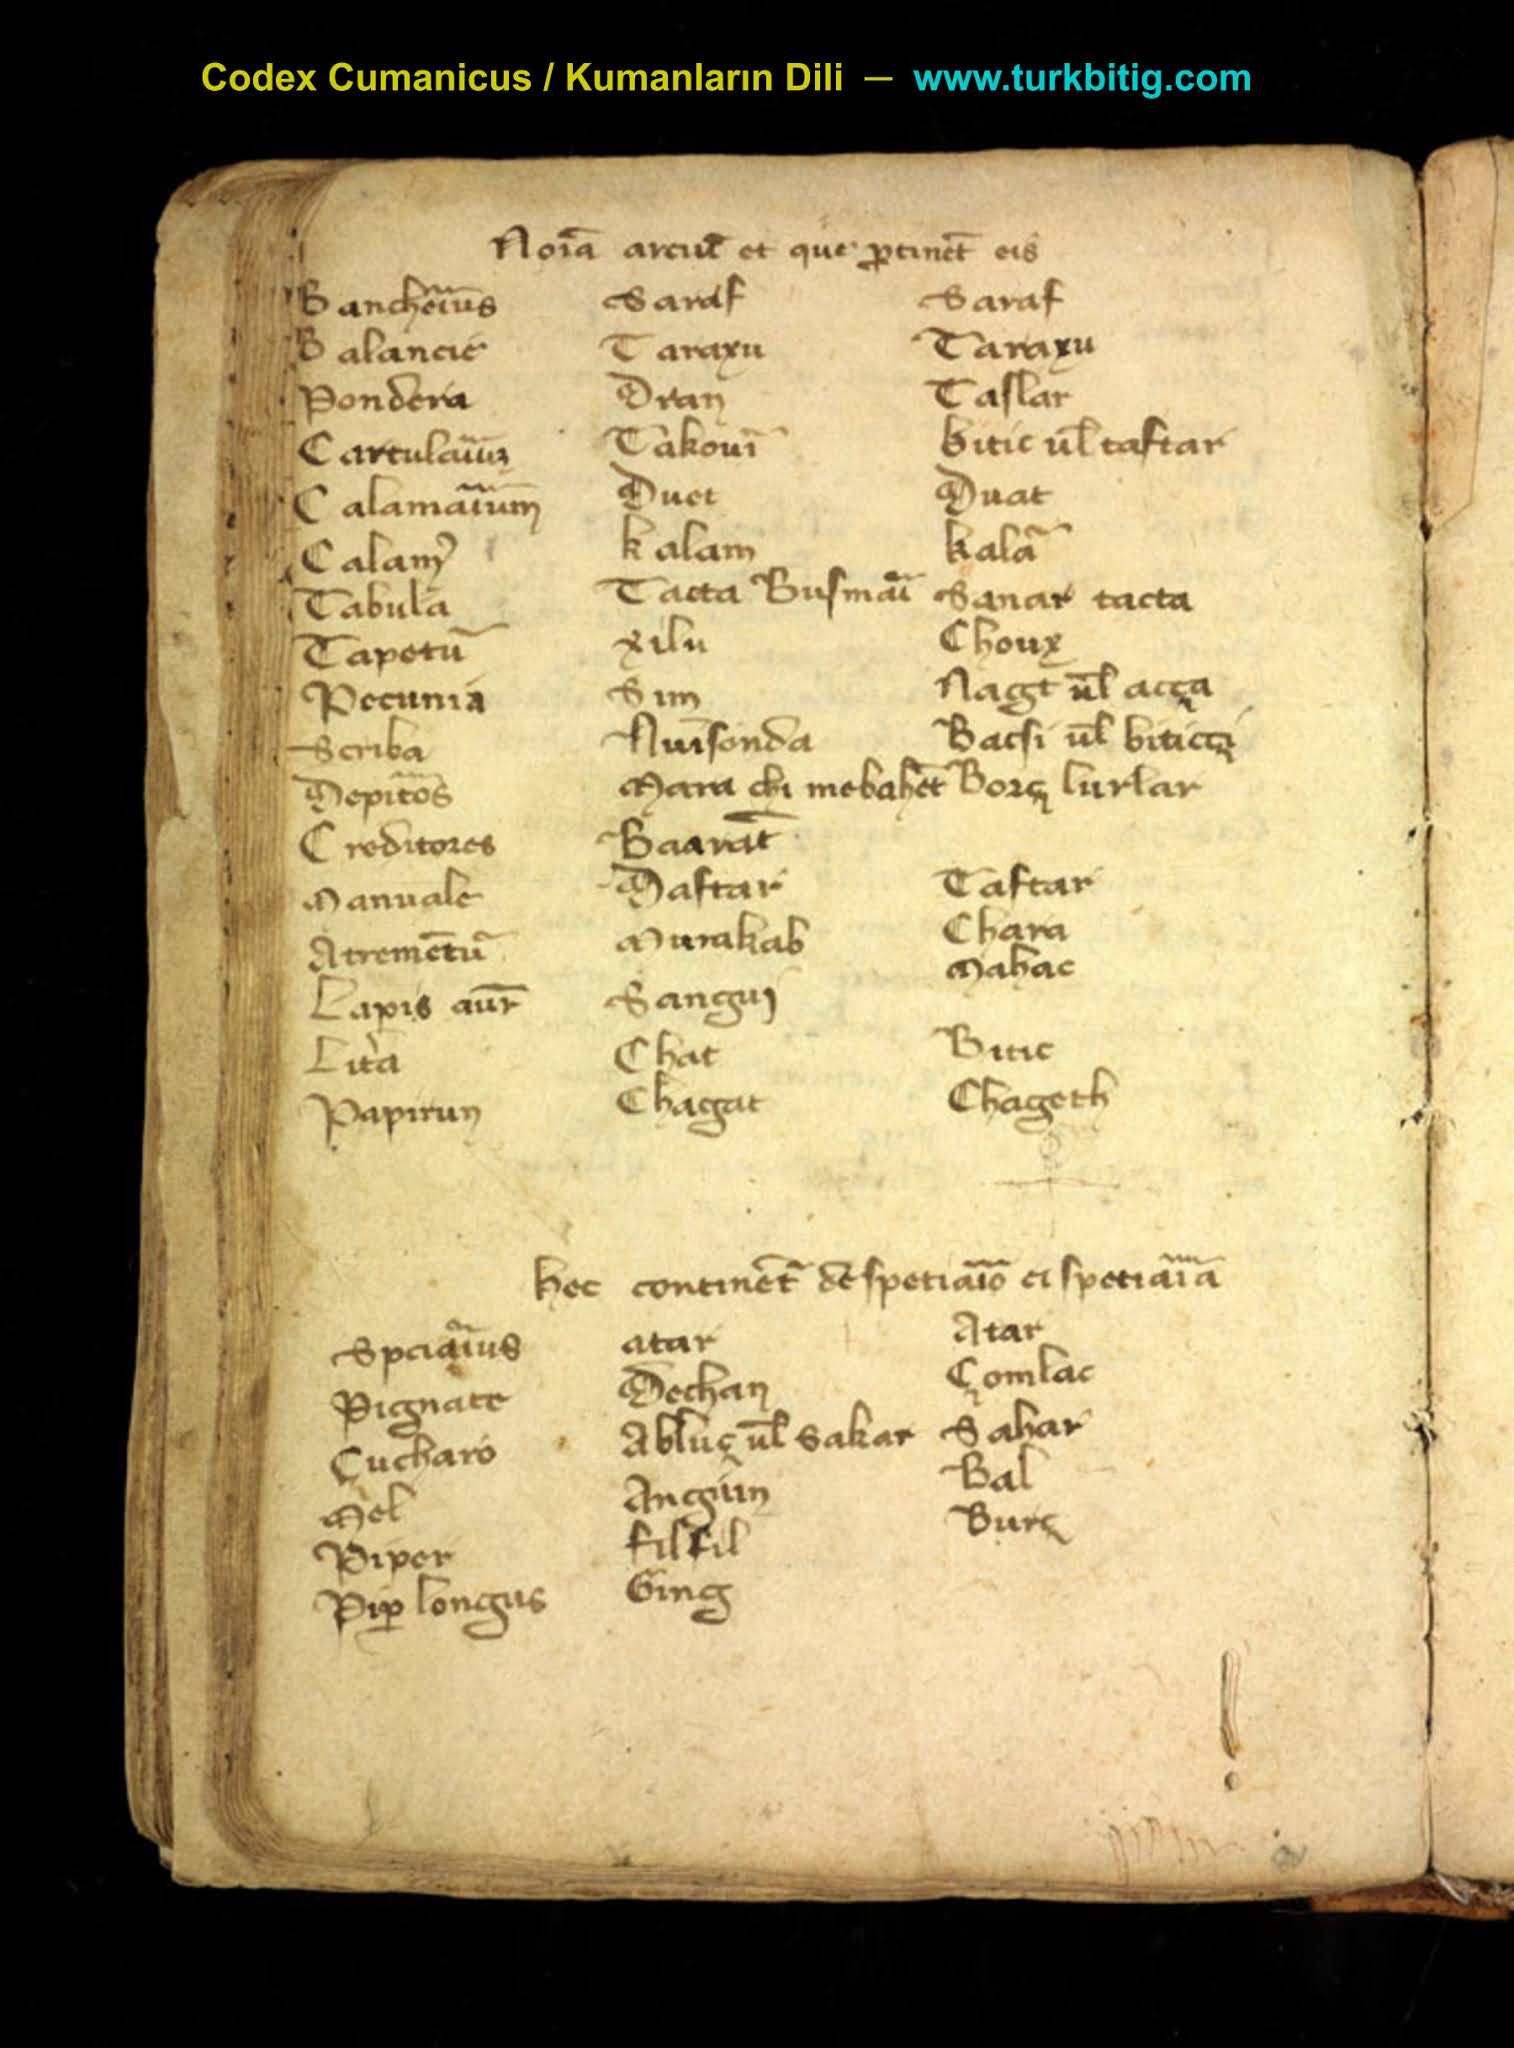 Codex Cumanicus / Kumanların Dili — www.turkbitig.com
Noīa arciū et que ꝑtinēt eis
Bancheīus Saraf Saraf
Balancie Taraxu Taraxu
Pondera Dran Taslar
Cartulaīuꝫ Takouī bitic ul̄ taftar
Calamaīum Duet Duat
Calamꝰ kalam kalā
Tabula Tacta Busmaī Sanar tacta
Tapetū xilu Choux
Pecunia Sim Nagt ul̄ acça
Scriba Nuīsonda Bacsi ul̄ biticçi
Depitōs Mara chi mebahēt Borç lurlar
Creditores Baarāt
Manuale Daftar Taftar
Atremētū Murakab Chara
Mahac
Lapis aur̄ Sangui
Litā Chat Bitic
Papirun Chagat Chageth
hec continēt de spetiaīo et spetiaīā
Spciaīus atar Atar
Pignate Dechan Çomlac
Cucharo Abluç ul̄ sakar Sahar
Mel Angūin Bal
Piper filfil Burç
Pip̱ longus Ging